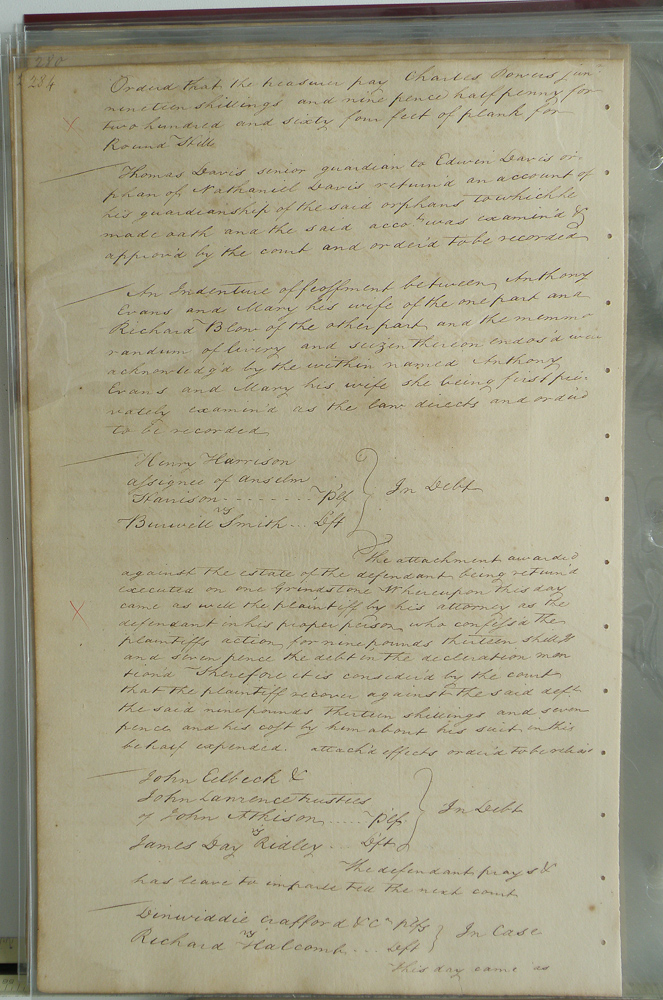 280
284
Orderd that the treasurer pay Charles Bowers junr
nineteen shillings and nine pence half penny for
two hundred and sixty four feet of plank for
Round Hills
Thomas Davis senior guardian to Edwin Davis or-
phan of Nathaniel Davis returnd an account of
his guardianship of the said orphans to which he
made oath and the said accots was examin'd &
approv'd by the court and orderd to be recorded
An Indenture of feoffment between Anthony
Evans and Mary his wife of the one part and
Richard Blow of the other part and the memmo
randum of livery and seizen thereon endos'd were
acknowledg'd by the within named Anthony
Evans and Mary his wife she being first pri-
vately examin'd as the law directs and orderd
to be recorded
Henry Harrison
assignee of Anselm
Harrison - - - - - - - - Plf
vs
Burwell Smith ... Dft
In Debt
The attachment awarded
against the estate of the defendant being return'd
executed on one Grindstone Whereupon this day
came as well the plaintiff by his attorney as the
defendant in his proper person who confess'd the
plaintiffs action for nine pounds thirteen shills
and seven pence the debt in the decleration men
tion'd Therefore it is consider'd by the court
that the plaintiff recover against the said deft
the said nine pounds thirteen shillings and seven
pence and his cost by him about his suit in this
behalf expended. attach'd effects order'd to be releas
John Eelbeck &
John Lawrence trusties
of John Atkison ..... Plfs
vs
James Day Ridley .. Dft
In Debt
The defendant prays &
has leave to imparle till the next court
Dinwiddie Crafford & Co plfs
vs
Richard Halcomb ... Deft
In Case
This day came as